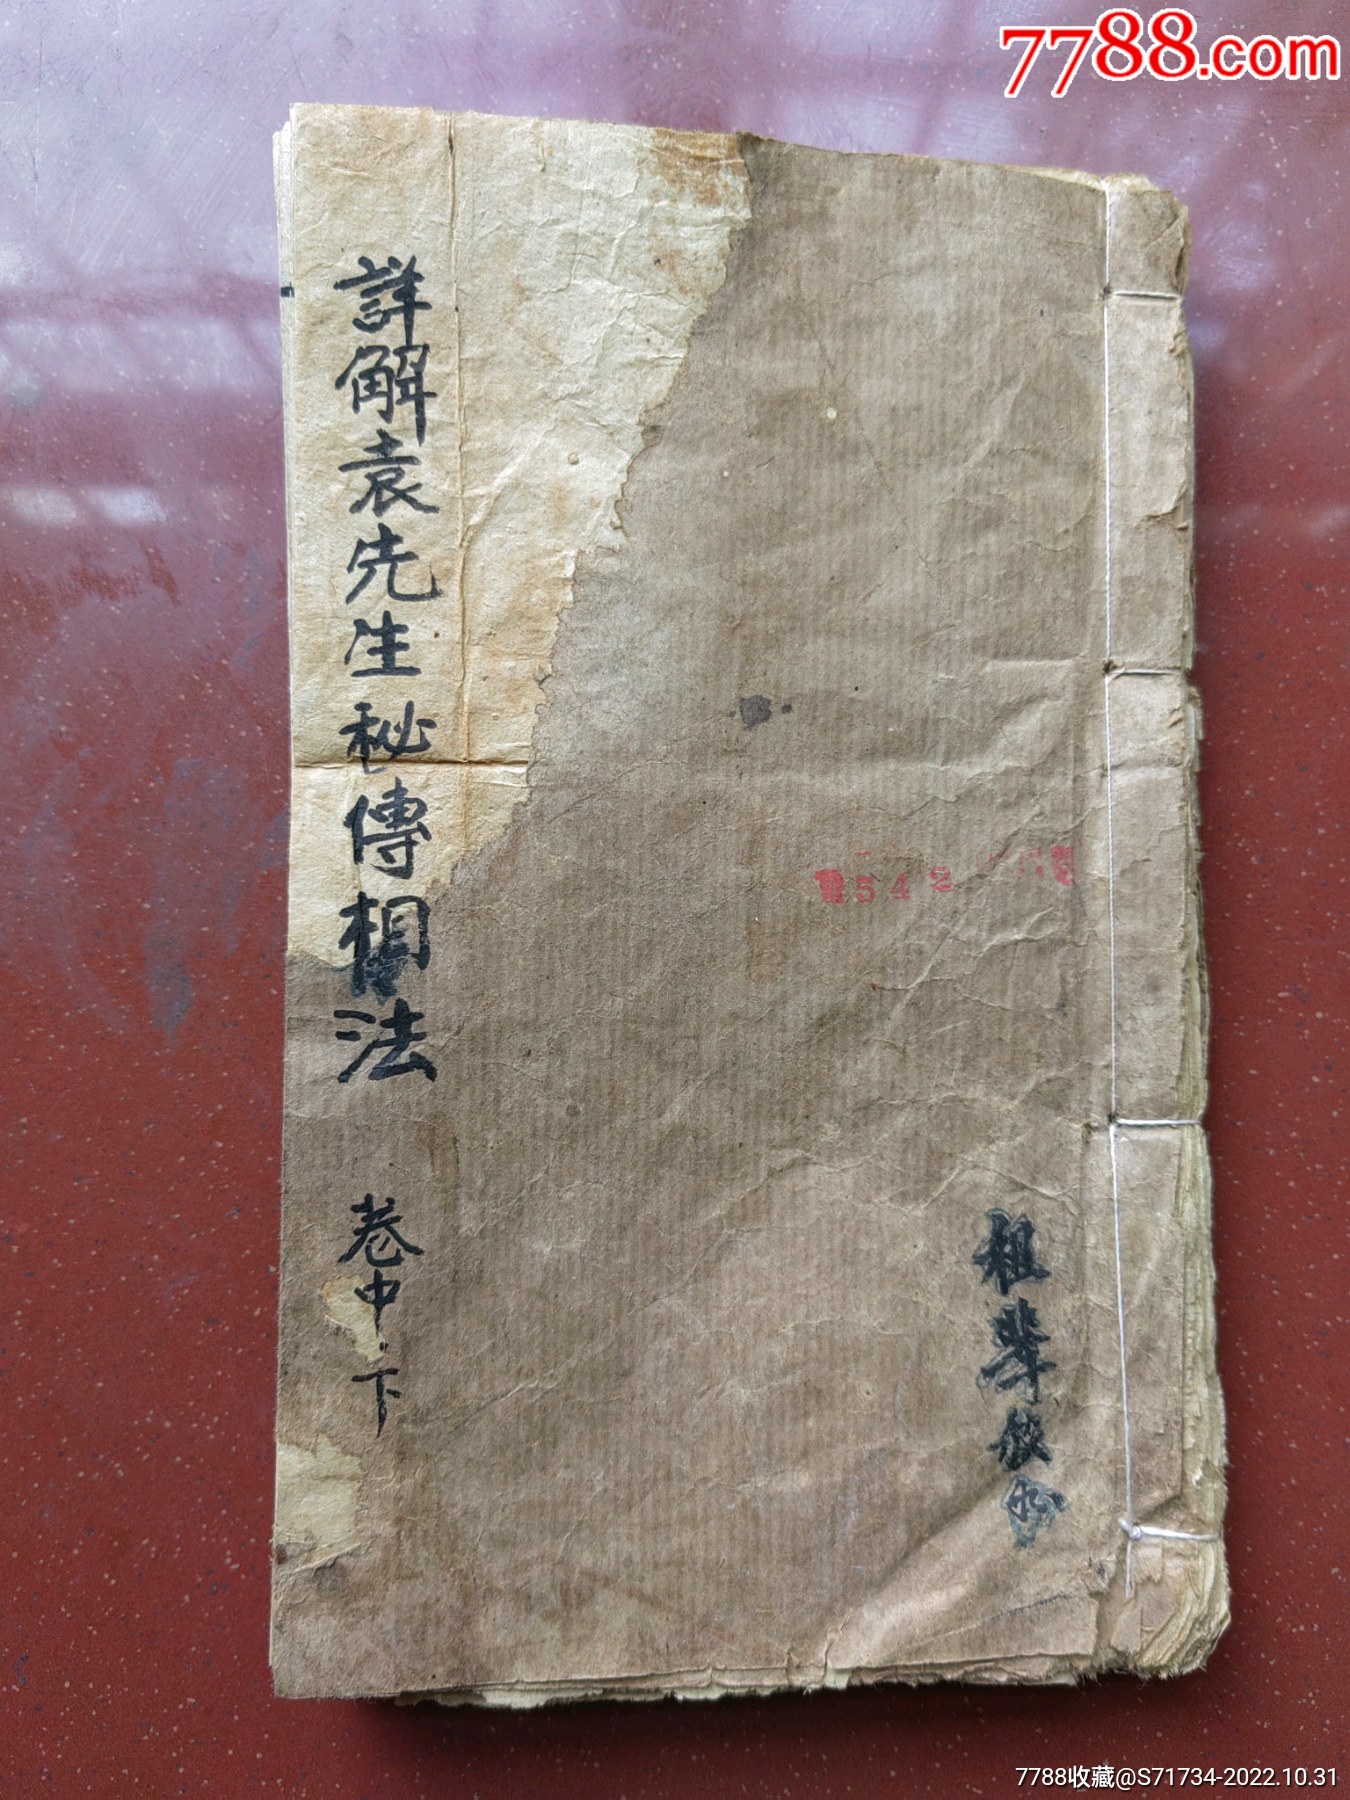 7788.com
詳解袁先生秘傳相法
卷中.下
542
祖
7788收藏@S71734-2022.10.31